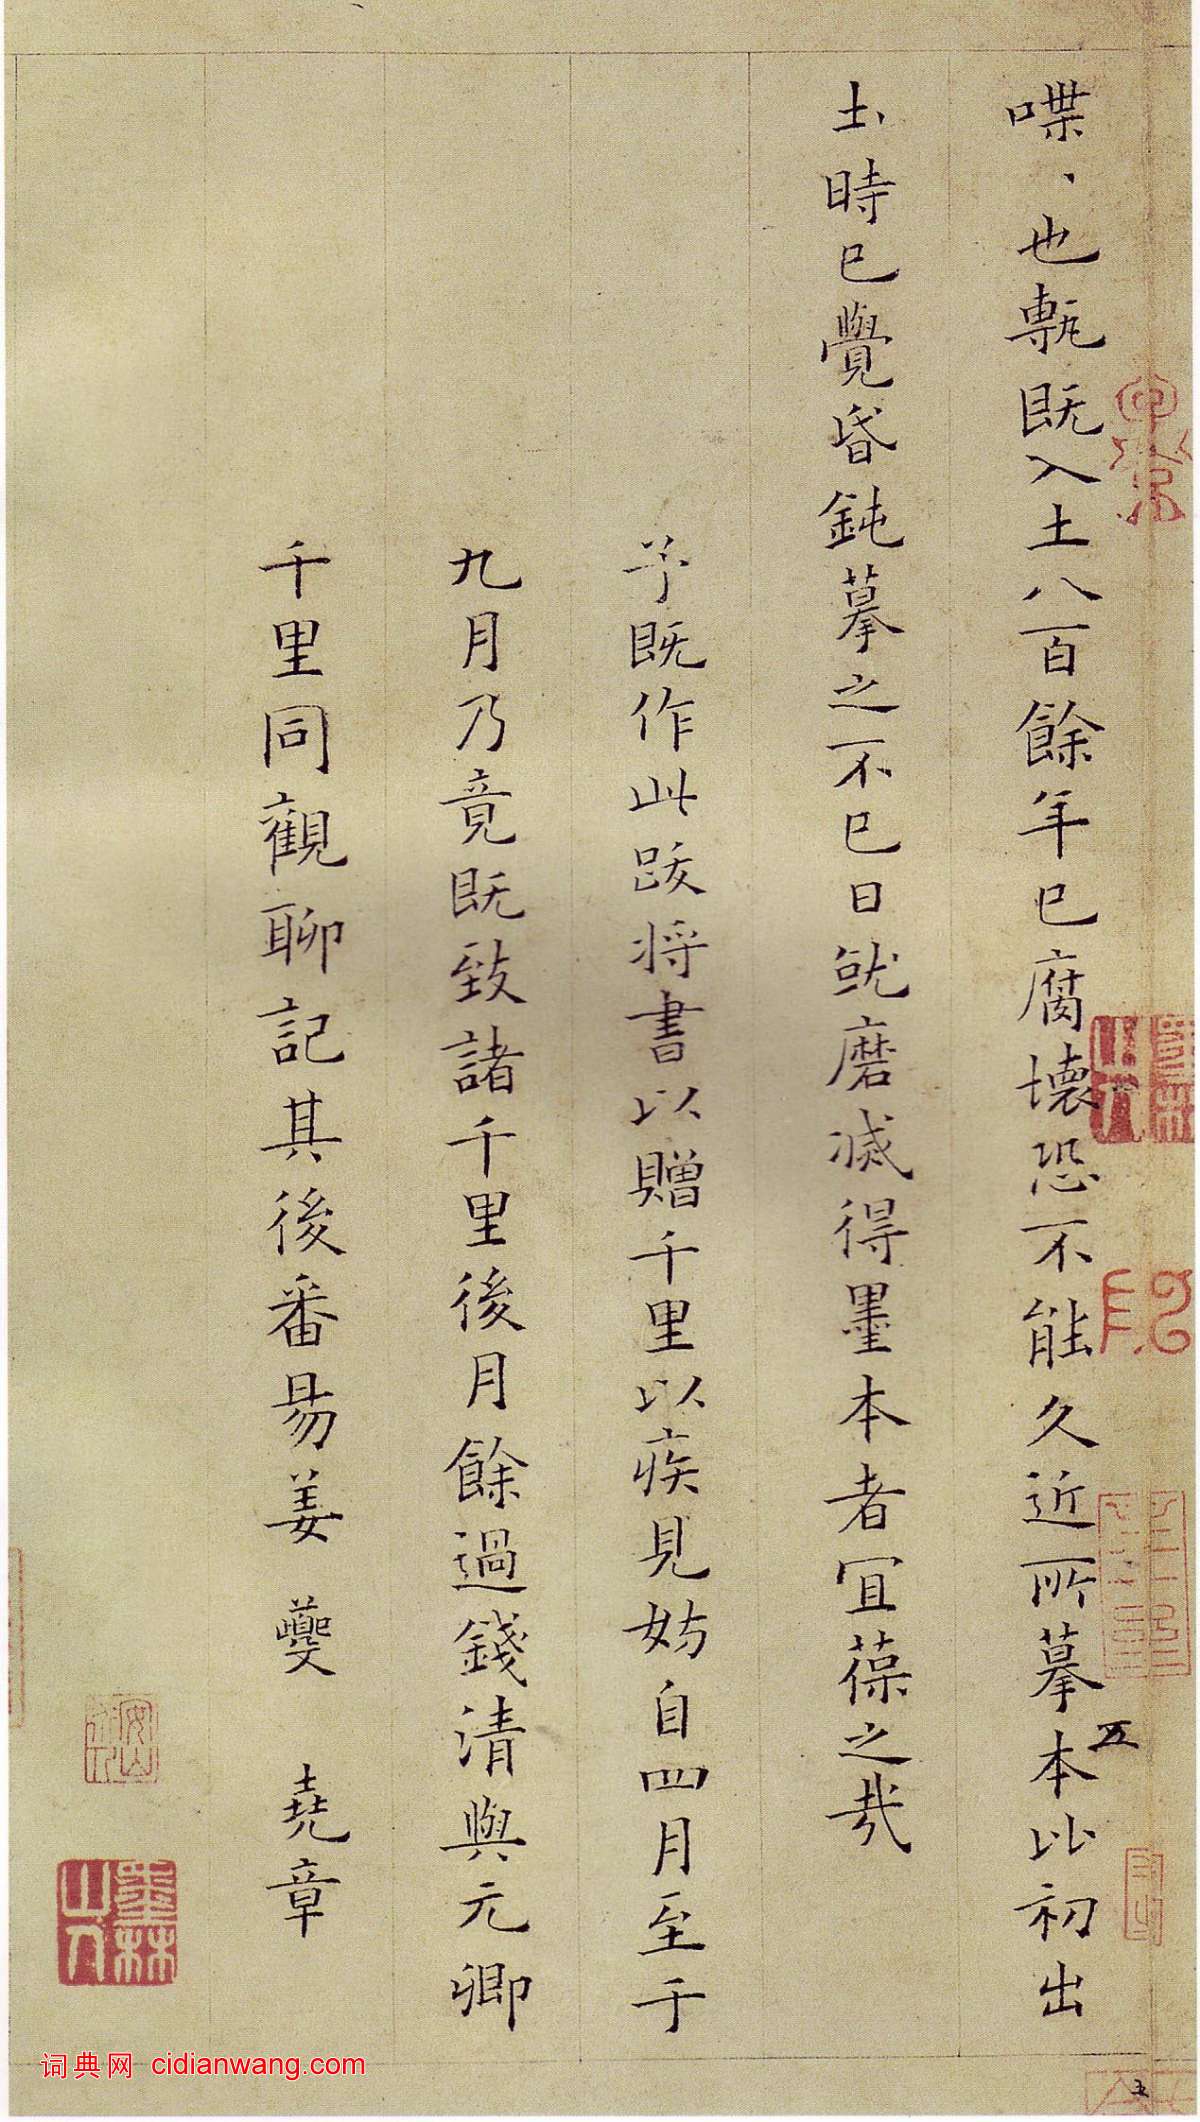 喋、也甎既入土八百餘年已腐壞恐不能久近所摹本比初出
土時已覺昏鈍摹之不已日就磨滅得墨本者宜葆之哉
予既作此跋将書以贈千里以疾見妨自四月至于
九月乃竟既致諸千里後月餘過錢清與元卿
千里同觀聊記其後番昜姜夔堯章
五
墨林山人
安山
墨林山人
五
词典网 cidianwang.com